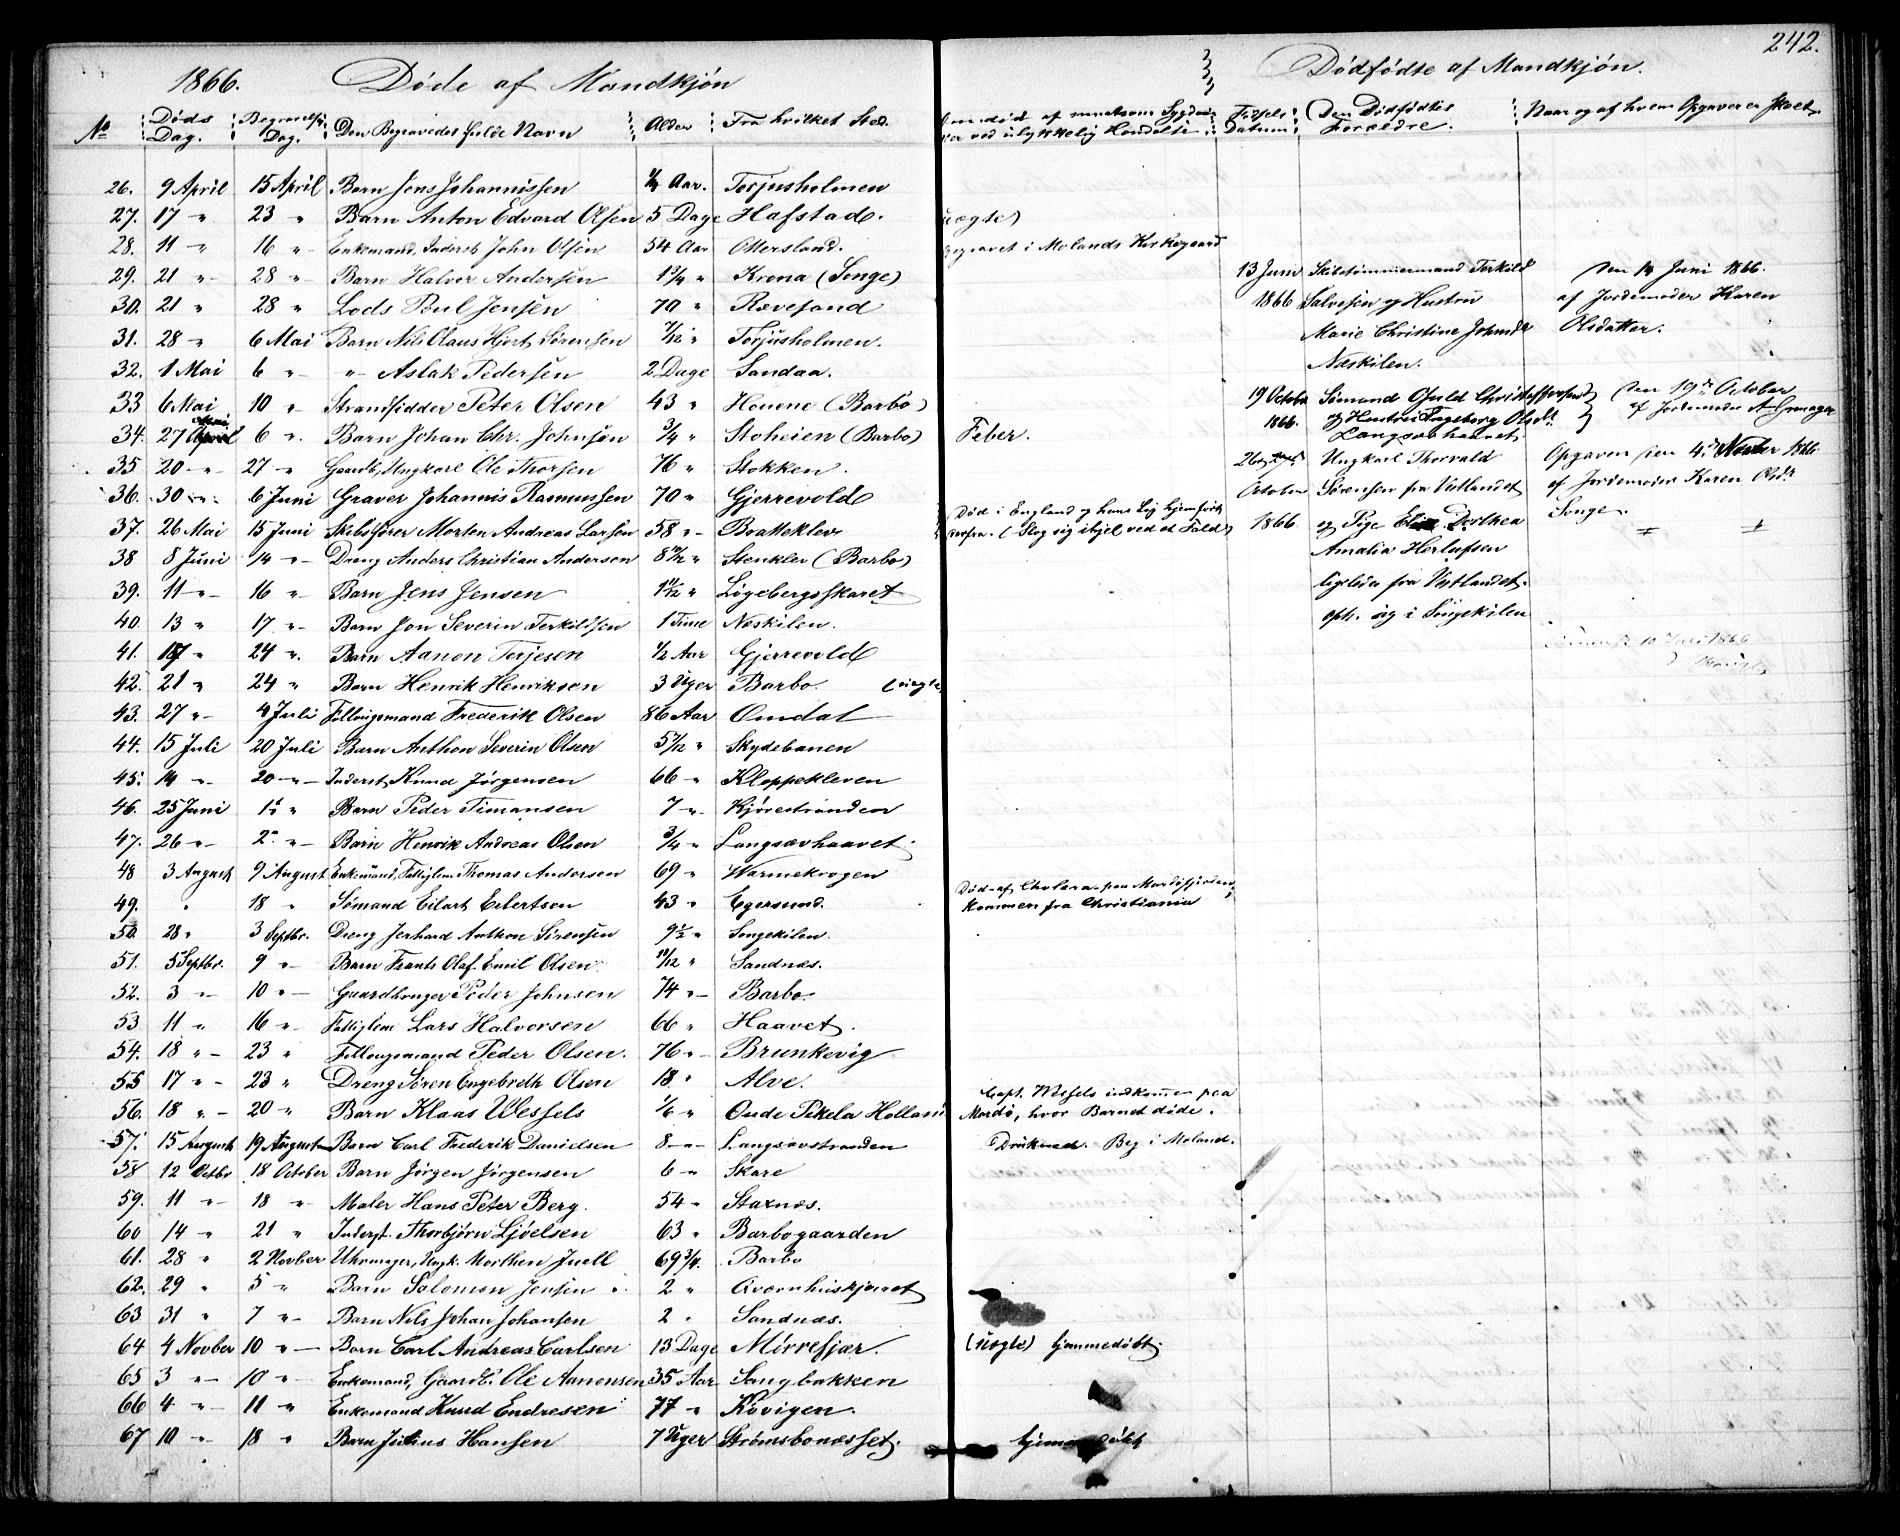 242.
1866. Døde af Mandkjøn
Dødfødte af Mandkjøn.
No Døds Dag. Begravelses Dag. Den Begravedes fulde Navn Alder Fra hvilket Sted.
død af smitsom Sygdom ved ulykkelig Hændelse Fødsels Datum Den Dødfødtes Forældre. Naar og af hvem Opgaven er skeet.
26. 9 April 15 April Barn Jens Johannissen 1/4 Aar. Torjusholmen
27. 17 " 23 " Barn Anton Edvard Olsen 5 Dage Hafstad. uægte)
28. 11 " 16 " Enkemand, Inderst John Olsen 54 Aar Ottersland. begravet i Molands Kirkegaard
29. 21 " 28 " Barn Halvor Andersen 1 1/4 " Krona (Songe)
30. 21 " 28 " Lods Poul Jensen 70 " Rævesand
31. 28 " 6 Mai Barn Nils Olaus Hjort Sørensen 7/12 " Torjusholmen.
32. 1 Mai 6 " " Aslak Pedersen 2 Dage Sandaa.
33 6 Mai 10 " Strandsidder Peter Olsen 43 " Houene (Barbo)
34. 27 April 6 " Barn Johan Chr. Johnsen 3/4 " Stoheien (Barbo) Feber.
35 20 " 27 " Gaardb. Ungkarl Ole Thorsen 76 " Stokken.
36. 30 " 6 Juni Graver Johannis Rasmussen 70 " Gjerrevold
37. 26 Mai 15 Juni Skibsfører Morten Andreas Larsen 58 " Boatteklev Død i England og hans Lig hjemført derfra. (Slog sig ihjel ved et Fald)
38 8 Juni 14 " Dreng Anders Christian Andersen 8 10/12 " Stenklev (Barbo)
39. 11 " 16 " Barn Jens Jensen 1 11/12 " Løgebergsskaret
40. 13 " 17 " Barn Jon Severin Terkildsen 1 Time Neskilen.
41. 17 " 24 " Barn Aanon Terjesen 1/2 Aar Gjerrevold
42. 21 " 24 " Barn Henrik Henriksen 3 Uger Barbo. (uægte
43. 27 " 4 Juli Følløugsmand Frederik Olsen 86 Aar Omdal
44. 15 Juli 20 Juli Barn Anthon Severin Olsen 5 7/12 " Skydebanen
45. 14 " 20 " Inderst Knud Jørgensen 66 " Kloppekleven
46. 25 Juni 1s " Barn Peder Timansen 7 " Kjørestranden
47. 26 " 2 " Barn Henrik Andreas Olsen 3/4 " Langsævhaavet
48 3 August 9 August Enkemand, Fattiglem Thomas Andersen 69 " Warmekrogen
49. " 18 " Sømand Eilart Eilertsen 43 " Egersund. Død af Cholera paa Mærdøfjorden, kommen fra Christiania
50. 28 " 3 Septbr. Dreng Jerhard Anthon Sørensen 9 1/2 " Songekilen.
51. 5 Septbr. 9 " Barn Frants Olaf Emil Olsen 10/12 " Sandnæs.
52. 3 " 10 " Gaardbruger Peder Johnsen 74 " Barbo.
53 11 " 16 " Fattiglem Lars Halvorsen 66 " Haavet.
54. 18 " 23 " Følløugsmand Peder Olsen. 76 " Brunkevig
55 17 " 23 " Dreng Søren Engebreth Olsen 18 " Alve.
56. 18 " 20 " Barn Klaas Wessels 1/6 " Oude Pekela Holland Capt. Wessels indkommen paa Mærdø, hvor Barnet døde.
57. 15 August 19 August Barn Carl Frederik Danielsen 8 " Langsævstranden Druknede. Beg i Moland.
58 12 Octbr 18 October Barn Jørgen Jørgensen 6 " Skare
59. 11 " 18 " Maler Hans Peter Berg. 54 " Staxnæs.
60 14 " 21 " Inderst Thorbjørn Ljøelsen 63 " Barbogaarden
61. 28 " 2 Novber Uhrmager, Ungk. Morthen Juell 69 3/4. Barbo
62. 29 " 5 " Barn Salomon Jensen 2 " Qværnhuskjærret
63 31 " 7 " Barn Nils Johan Johansen 2 " Sandnæs.
64 4 Novber 10 " Barn Carl Andreas Carlsen 13 Dage Mørrefjær. (uægte) hjemmedøbt.
65 3 " 10 " Enkemand, Gaardb. Ole Aanonsen 35 Aar Sangbakken
66 4 " 11 " Enkemand Knud Endresen 77 " Kovigen.
67 10 " 18 " Barn Julius Hansen 7 Uger Strømsbonesset. hjemmedøbt
13 Juni 1866 Skibstømmermand Terkild Salvesen og Hustru Marie Christine Johnsdr Neskilen.
Den 14 Juni 1866. af Jordemoder Karen Olsdatter.
19 October 1866. Sømand Guld Christoffersen og Hustru Ingeborg Olsdr. Langsævhaavet
Den 19de October af Jordemoder A.
October 1866 Ungkarl Thorvald Sørensen fra Vestlandet og Pige Dorthea Amalia Herlufsen ligeledes fra Vestlandet. oph. sig i Songekilen
Opgaven den 4de Novber 1866 af Jordemoder Karen Olsdr Songe.
10 Juli 1866